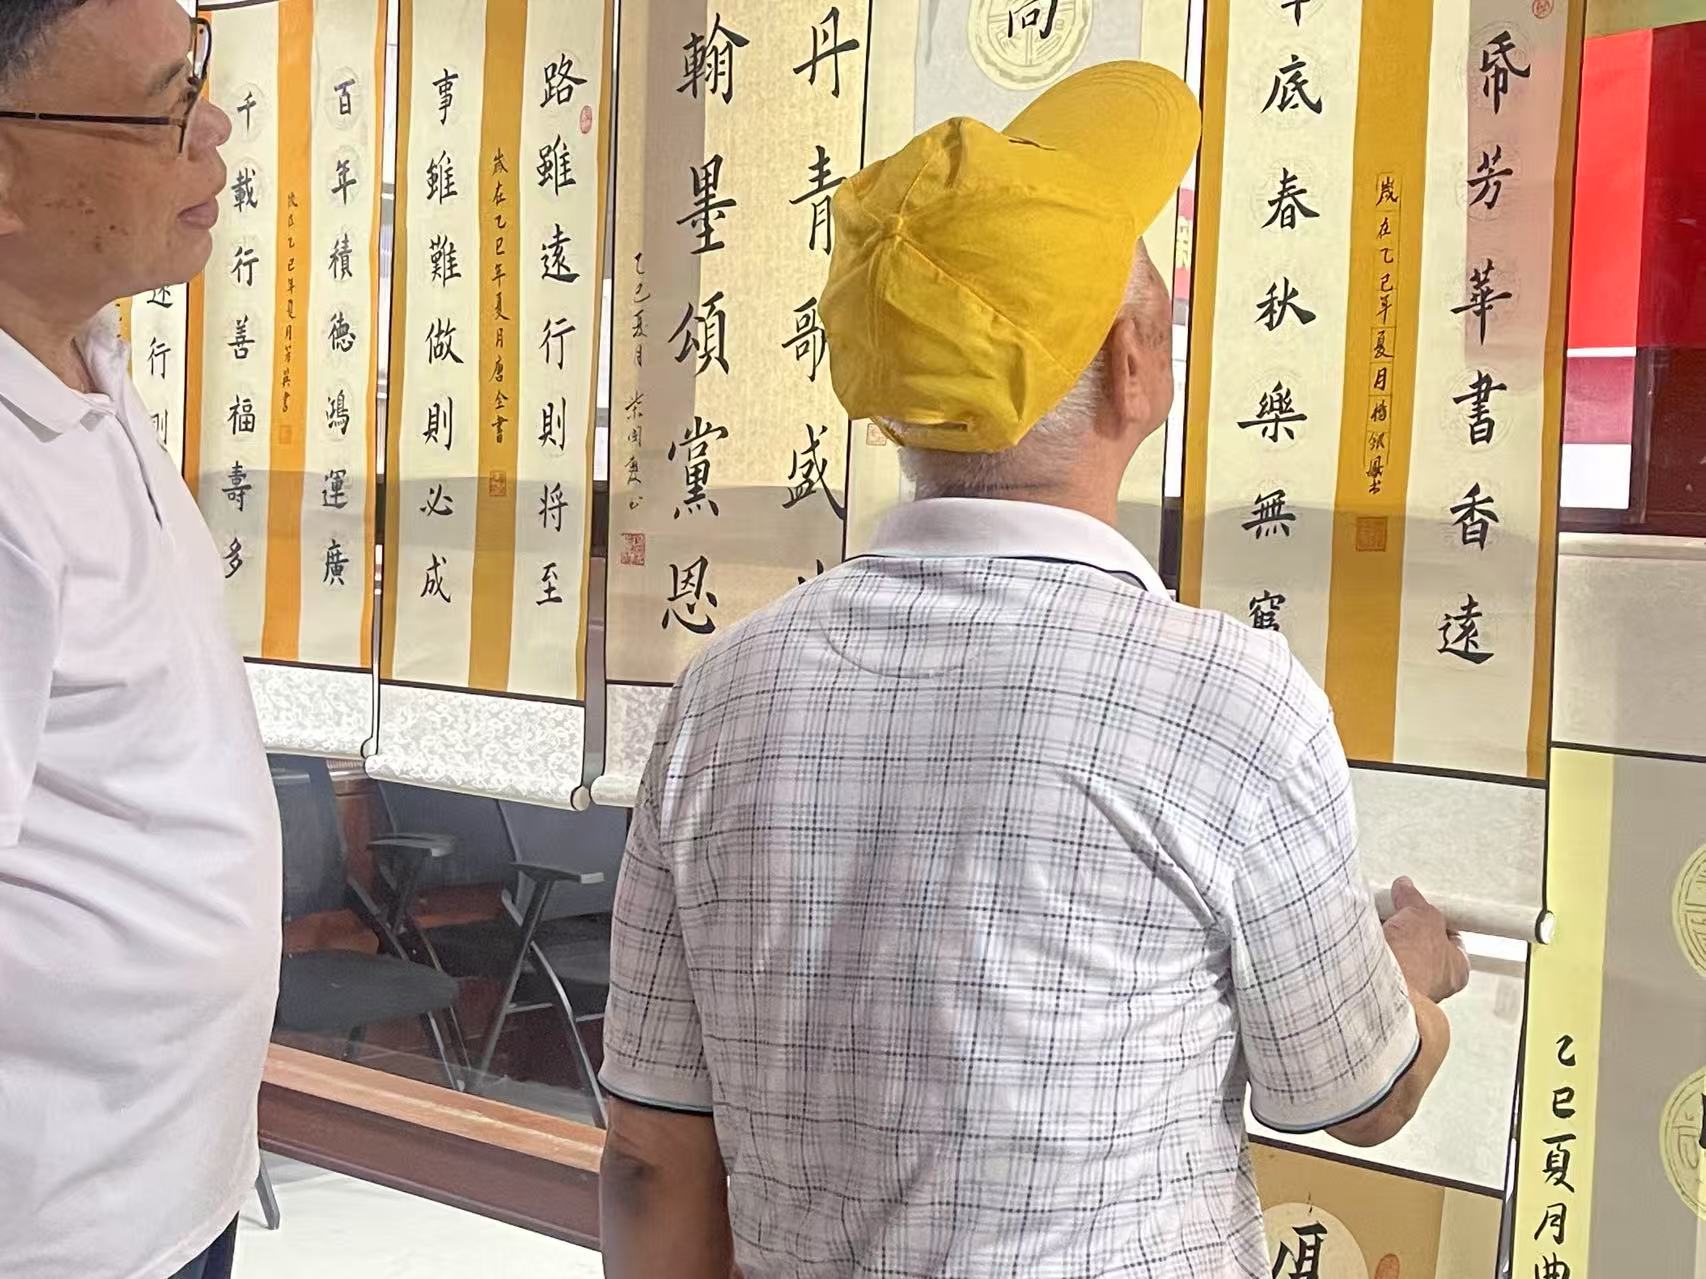 乙巳夏月曲
帋芳華書香遠
歲在乙巳年夏月楊銀鳳书
底春秋樂無窮
丹青歌盛
翰墨頌黨恩
乙巳夏月
路雖遠行則将至
歲在乙巳年夏月唐全書
事雖難做則必成
百年積德鴻運廣
歲在乙巳年夏月芳英書
千載行善福壽多
行則